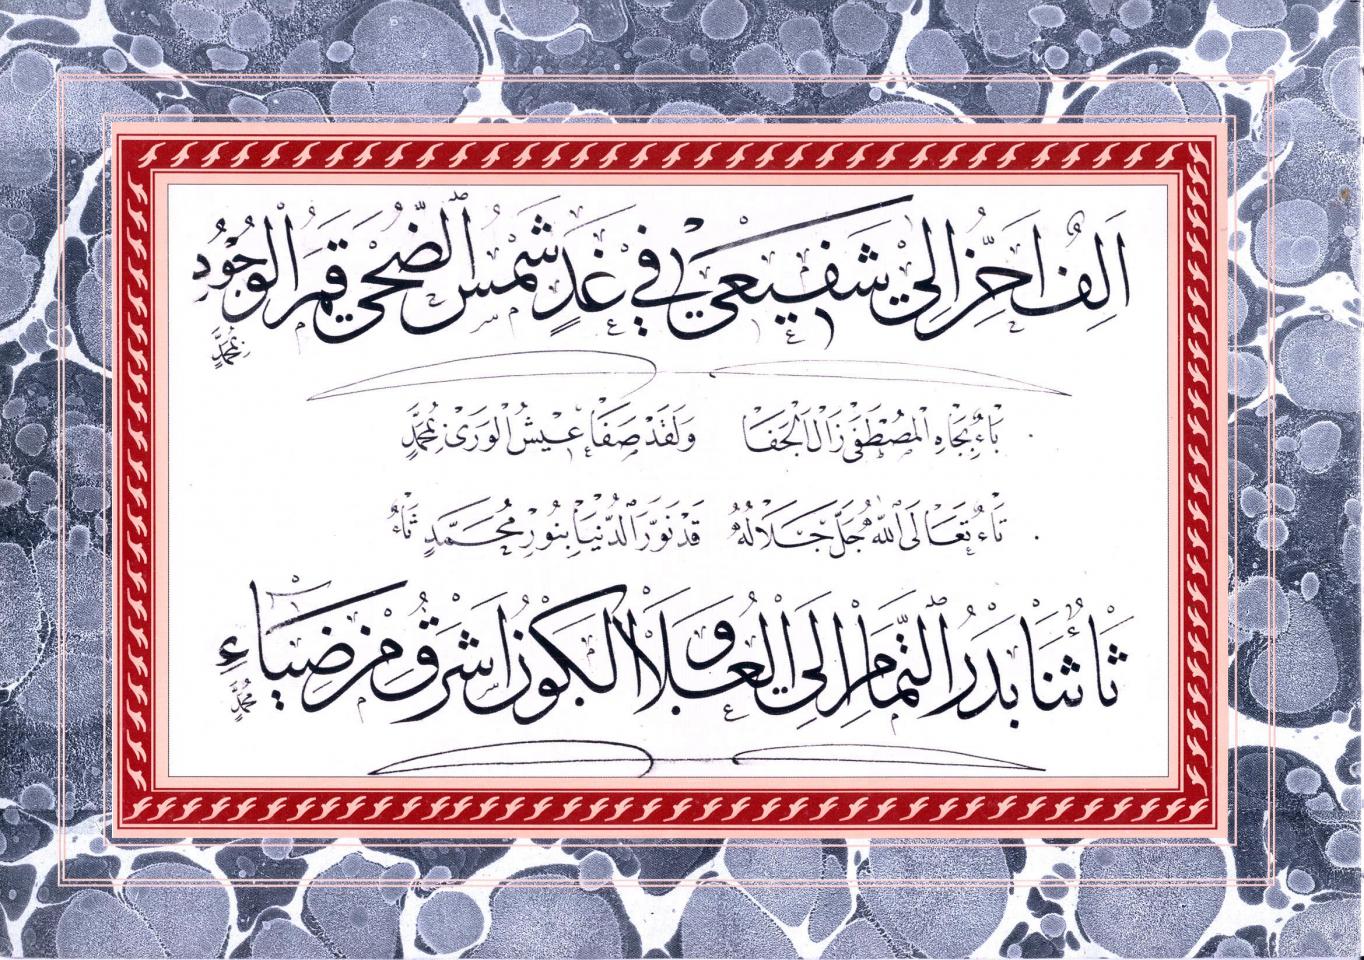 اَلِفُ اَحِنُّ اِلٰى شَفِيعِي فِي غَدٍ شَمْسُ الضُّحٰى قَمَرُ الْوُجُودِ مُحَمَّدٍ
بَاءٌ بِجَاهِ الْمُصْطَفٰى زَالَ الْجَفَا وَلَقَدْ صَفَا عَيْشُ الْوَرٰى بِمُحَمَّدٍ
تَاءٌ تَعَالَى اللّٰهُ جَلَّ جَلَالُهُ قَدْ نَوَّرَ الدُّنْيَا بِنُورِ مُحَمَّدٍ ثَاءٌ
ثَاءٌ ثَنَا بَدْرُ التَّمَامِ اِلَى الْعُلَا وَالْكَوْنُ اَشْرَقَ مِنْ ضِيَاءِ مُحَمَّدٍ